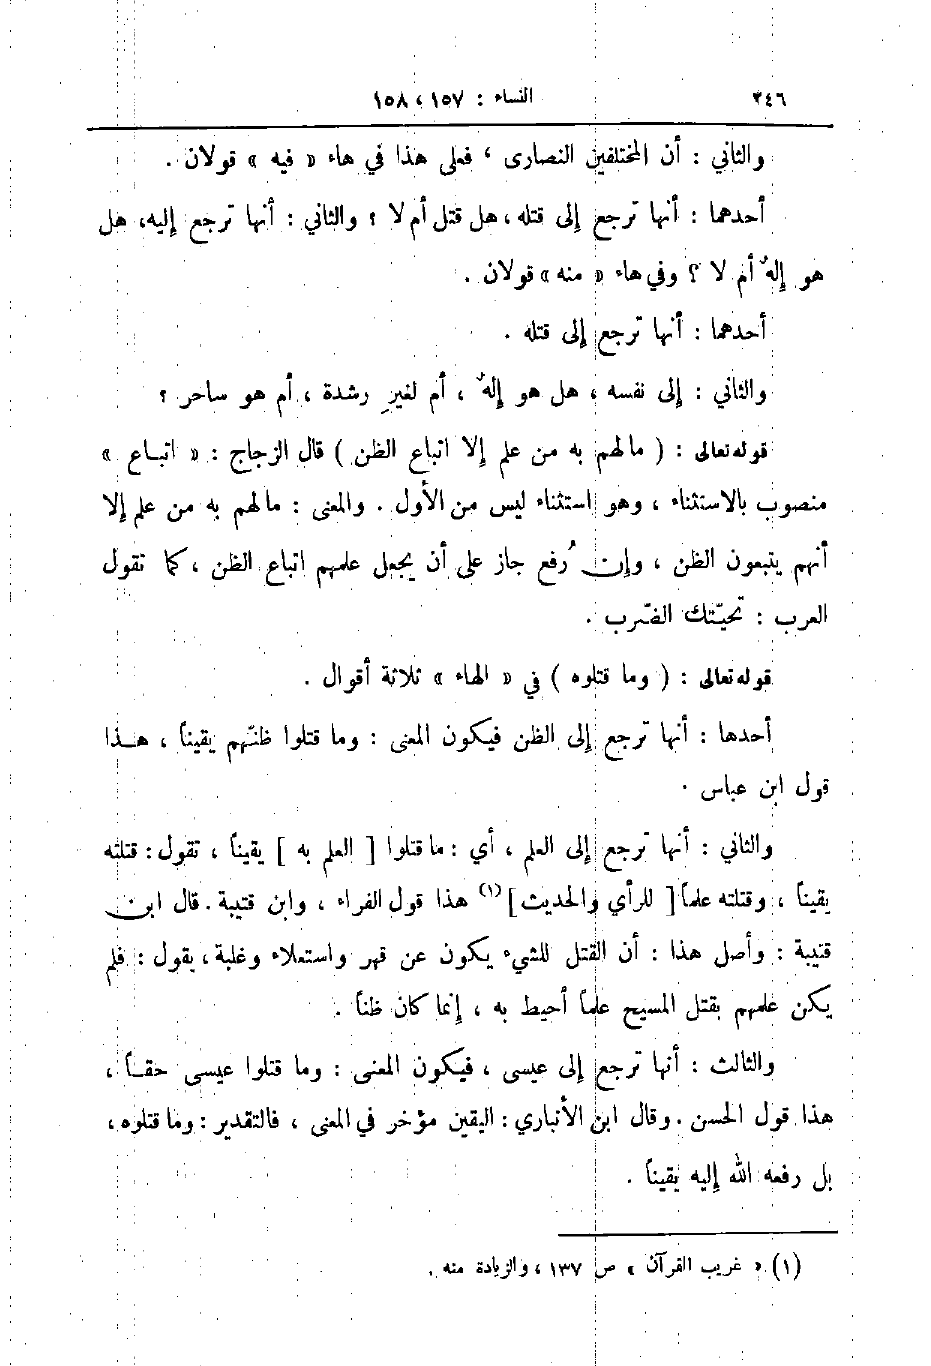 ٢٤٦ النساء : ١٥٧ ، ١٥٨
والثاني : أن المختلفين النصارى ، فعلى هذا في هاء « فيه » قولان .
أحدهما : أنها ترجع إلى قتله ، هل قتل أم لا ؟ والثاني : أنها ترجع إليه، هل
هو إلهٌ أم لا ؟ وفي هاء « منه » قولان .
أحدهما : أنها ترجع إلى قتله .
والثاني : إلى نفسه ، هل هو إلهٌ ، أم لغيرِ رشدة ، أم هو ساحر ؟
قوله تعالى : ( مالهم به من علم إلا اتباع الظن ) قال الزجاج : « اتبـاع »
منصوب بالاستثناء ، وهو استثناء ليس من الأول . والمعنى : مالهم به من علم إلا
أنهم يتبعون الظن ، وإن رُفع جاز على أن يجعل علمهم اتباع الظن ، كما تقول
العرب : تحيّتك الضّرب .
قوله تعالى : ( وما قتلوه ) في « الهاء » ثلاثة أقوال .
أحدها : أنها ترجع إلى الظن فيكون المعنى : وما قتلوا ظنّهم يقيناً ، هـذا
قول ابن عباس .
والثاني : أنها ترجع إلى العلم ، أي : ما قتلوا [ العلم به ] يقيناً ، تقول : قتلته
يقيناً ، وقتلته علماً [ للرأي والحديث ](١) هذا قول الفراء ، وابن قتيبة . قال ابن
قتيبة : وأصل هذا : أن القتل للشيء يكون عن قهر واستعلاء وغلبة ، يقول : فلم
يكن علمهم بقتل المسيح علماً أحيط به ، إنما كان ظناً .
والثالث : أنها ترجع إلى عيسى ، فيكون المعنى : وما قتلوا عيسى حقـاً ،
هذا قول الحسن . وقال ابن الأنباري : اليقين مؤخر في المعنى ، فالتقدير : وما قتلوه ،
بل رفعه الله إليه يقيناً .
(١) « غريب القرآن » ص ١٣٧ ، والزيادة منه .